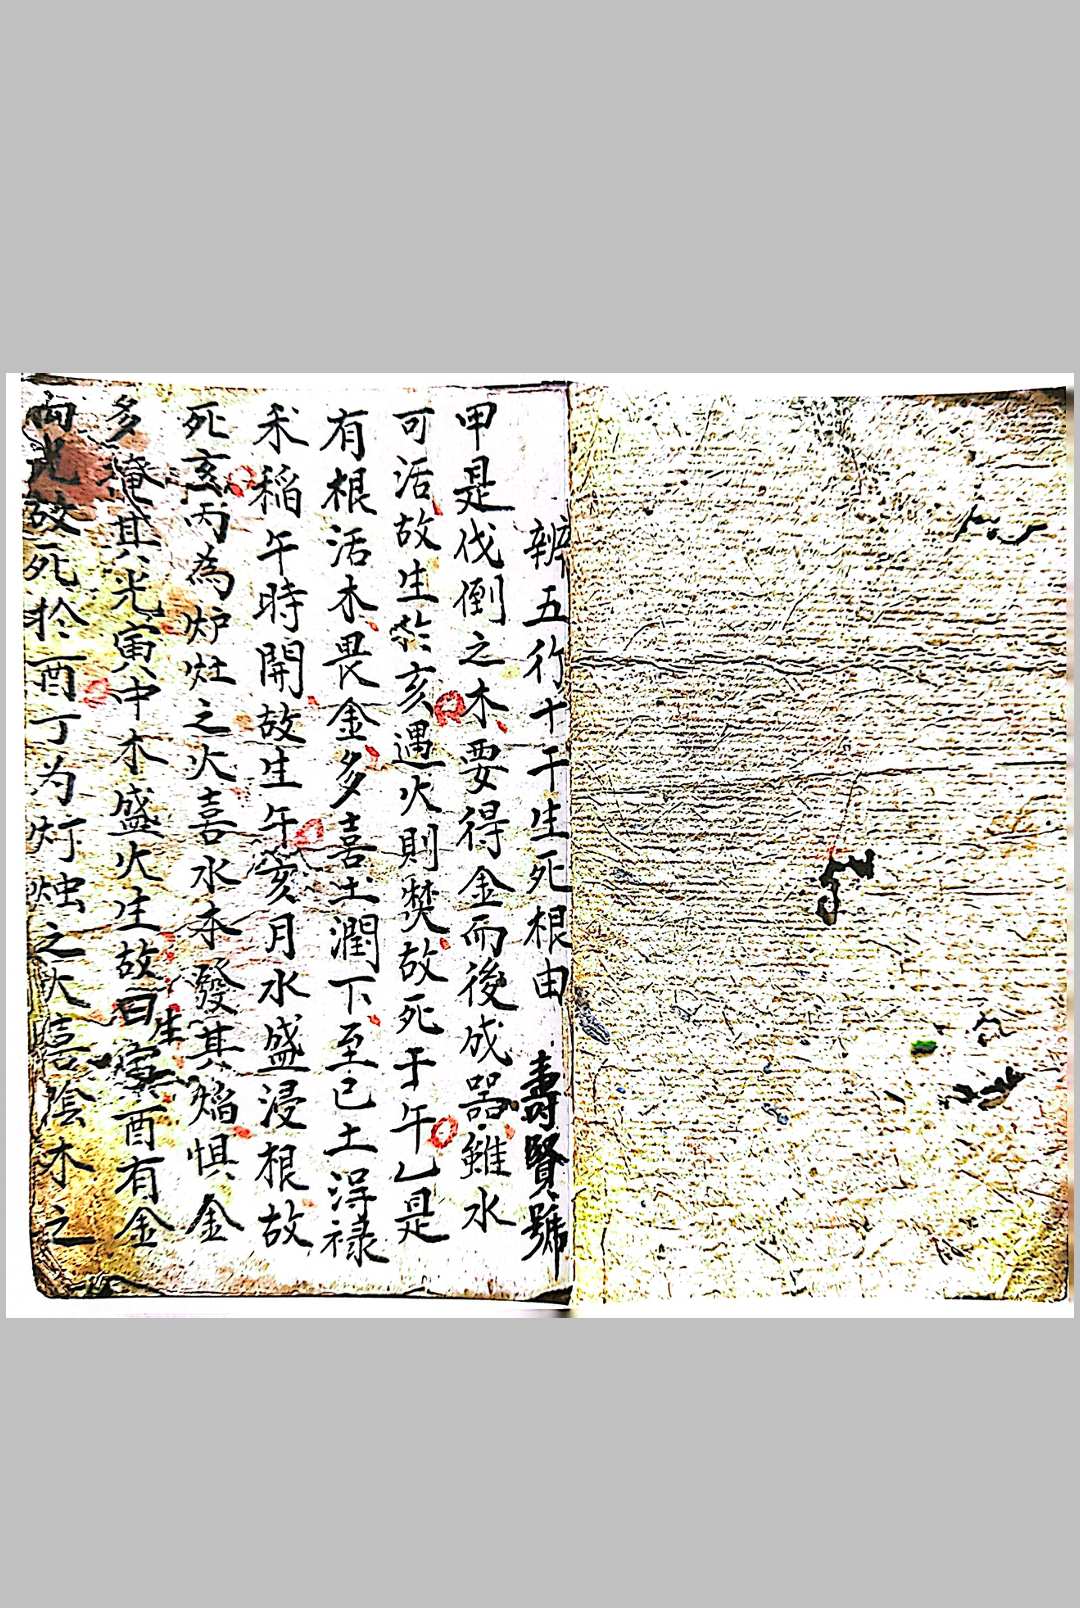 辨五行十干生死根由 壽賢號
甲是伐倒之木要得金而後成器雖水
可活故生於亥遇火則焚故死于午乙是
有根活木畏金多喜土潤下至已土淂禄
禾稲午時開故生午亥月水盛浸根故
死亥丙為炉灶之火喜水木發其焰惧金
多掩其光寅中木盛火生故曰生寅酉有金
故死於酉丁为灯烛之火喜陰木之